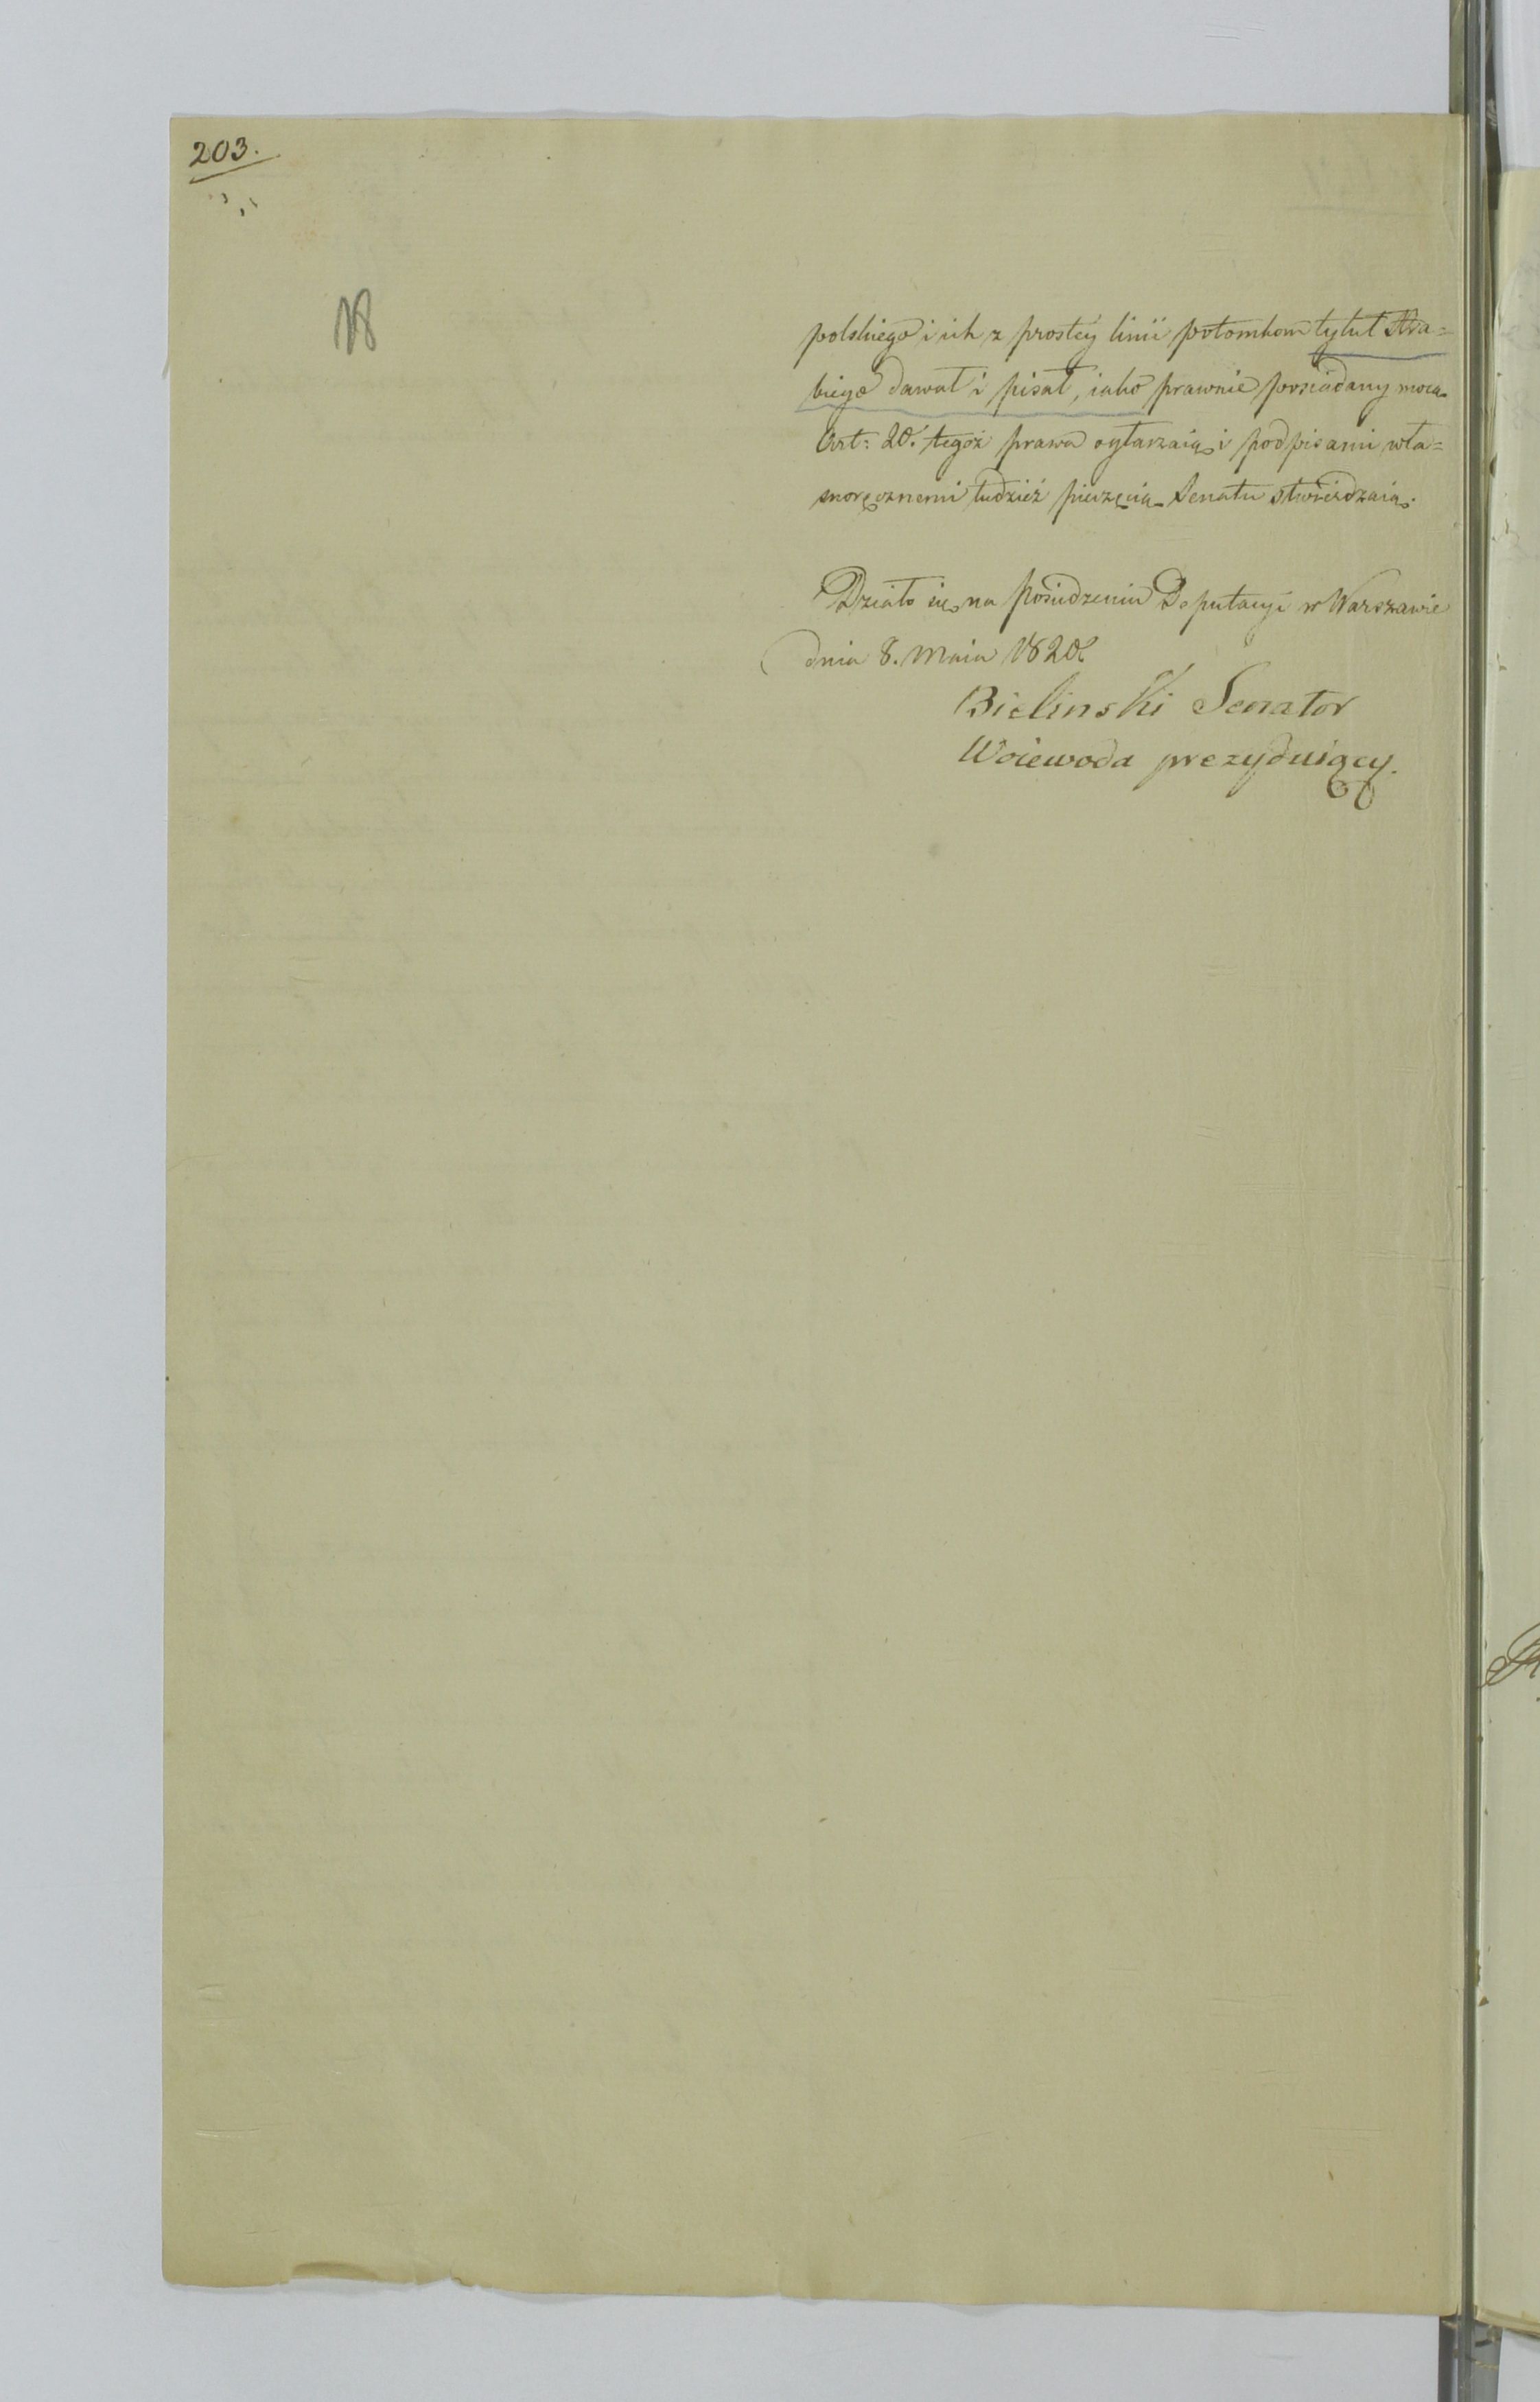 203.
18
polskiego i ich z prostey linii potomkom tytuł Hra=
biego dawał i pisał, iako prawnie posiadany mocą
Art: 20. tegoż prawa ogłaszaią i podpisami wła=
snoręcznemi tudzież pieczęcią Senatu stwierdzaią.
Działo się na posiedzeniu Deputacyi w Warszawie
dnia 8. Maia 1820
Bielinski Senator
Woiewoda prezyduiący.